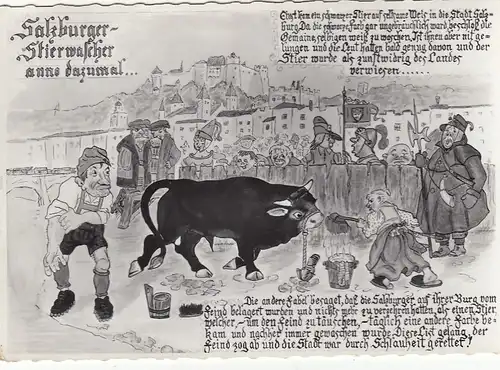 Salzburger
Stierwascher
anno dazumal...
Einst kam ein schwarzer Stier auf seltsame Weis in die Stadt Salz-
burg. Da die schwarze Farb gar ungebräuchlich ward, beschloß die
Gemaine, selbigen weiß zu waschen. Ist ihnen aber nit ge-
lungen und die Leut hatten bald genug davon und der
Stier wurde als zunftwidrig des Landes
verwiesen......
Die andere Fabel besaget, daß die Salzburger auf ihrer Burg vom
Feind belagert wurden und nichts mehr zu verzehren hatten, als einen Stier,
welcher, – um den Feind zu täuschen, – täglich eine andere Farbe be-
kam und nachher immer gewaschen wurde. Diese List gelang, der
Feind zog ab und die Stadt war durch Schlauheit gerettet!